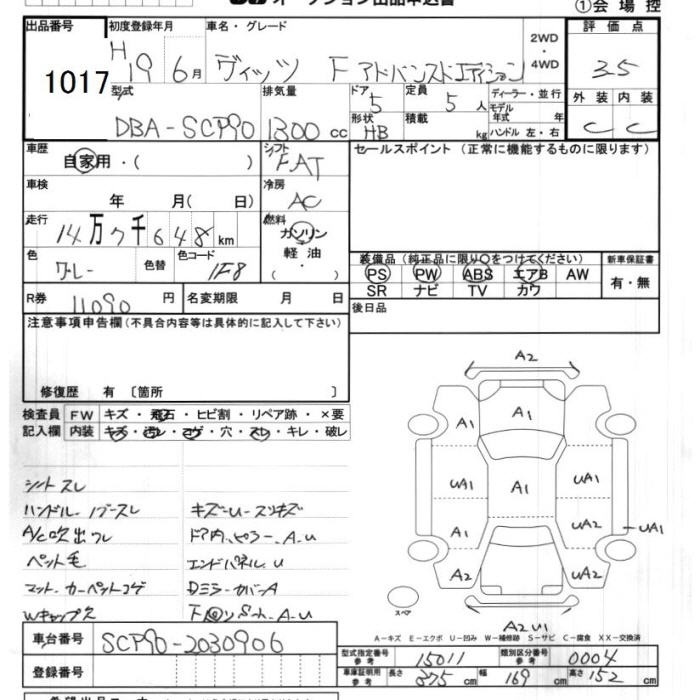 オークション出品申込書
①会場控
出品番号 初度登録年月 車名・グレード 評価点
1017 H19 6月 ヴィッツ F アドバンスドエディション 2WD・4WD 3.5
型式 排気量 ドア 5 定員 5人 ディーラー・並行 外装 内装
DBA-SCP90 1300cc 形状 HB 積載 kg モデル年式 年 ハンドル 左・右 C C
車歴 自家用・( ) シフト FAT セールスポイント (正常に機能するものに限ります)
車検 年 月( 日) 冷房 AC
走行 14万7千648km 燃料 ガソリン・軽油・( )
色 グレー 色替 色コード 1F8
装備品 (純正品に限り○をつけてください) 新車保証書
PS PW ABS エアB AW 有・無
SR ナビ TV カワ
R券 11090円 名変期限 月 日 後日品
注意事項申告欄 (不具合内容等は具体的に記入して下さい)
修復歴 有 〔箇所 〕
検査員 FW キズ・飛石・ヒビ割・リペア跡・×要
記入欄 内装 キズ・汚レ・コゲ・穴・スレ・キレ・破レ
シートスレ
ハンドル・ノブースレ キズーUースリキズ
A/C吹出ワレ ドア内、ピラー、A-U
ペット毛 エンドパネル U
マット、カーペットコゲ Dミラーカバー A
Wキャップ欠
A2
A1 A1
UA1 A1 UA1
A1 UA2 UA1
A2 UA2
スペア
A2 U1
A－キズ E－エクボ U－凹み W－補修跡 S－サビ C－腐食 XX－交換済
車台番号 SCP90-2030906
登録番号
型式指定番号 参考 15011 類別区分番号 参考 0004
車庫証明用 参考 長さ 375cm 幅 169cm 高さ 152cm